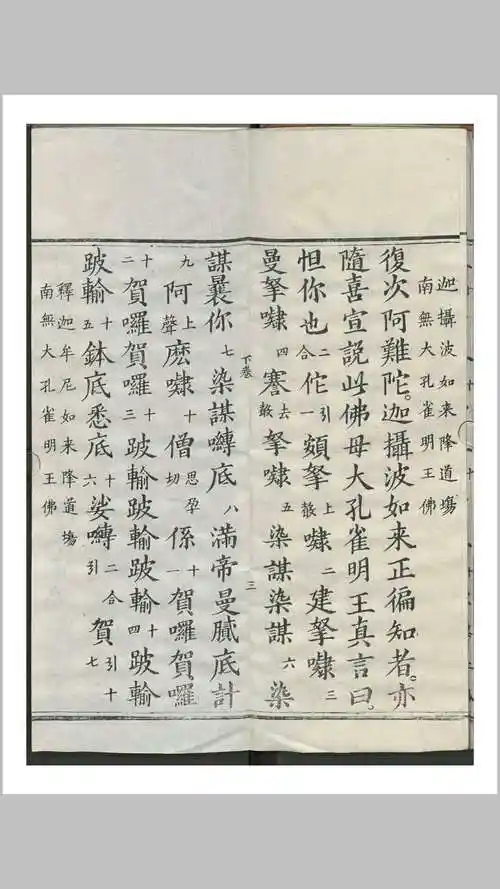 迦攝波如来降道塲
南無大孔雀明王佛
復次阿難陀。迦攝波如来正徧知者。亦
隨喜宣說此佛母大孔雀明王真言曰。
怛你也二合佗引一頞拏上㘑二建拏㘑三
曼拏㘑四謇去拏㘑五染謀染謀六染
下卷 三
謀曩你七染謀嚩底八滿帝曼膩底計
九阿上聲麽㘑十僧思孕切係十一賀囉賀囉
十二賀囉賀囉十三跛輸跛輸跛輸十四跛輸
跛輸十五鉢底悉底十六娑嚩二合引賀引十七
釋迦牟尼如来降道塲
南無大孔雀明王佛